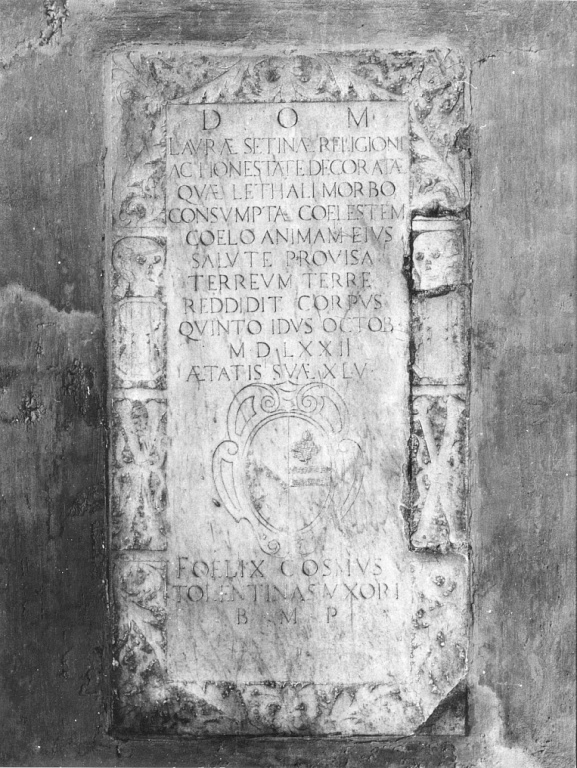 D O M
LAVRÆ SETINÆ RELIGIONI
AC HONESTATE DECORATÆ
QVÆ LETHALI MORBO
CONSVMPTA COELESTEM
COELO ANIMAM EIVS
SALVTE PROVISA
TERREVM TERRE
REDDIDIT CORPVS
QVINTO IDVS OCTOB
M D LXXII
ÆTATIS SVÆ XLV
FOELIX COSMVS
TOLENTINAS VXORI
B M P